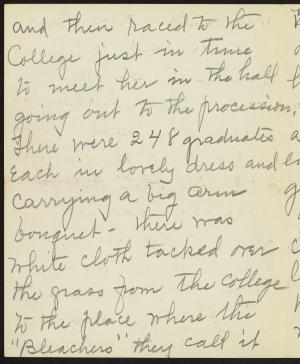 and then raced to the
College just in time
to meet her in the hall
going out to the procession,
There were 248 graduates
Each in lovely dress and
carrying a big arm
bouquet - there was
white cloth tacked over
the grass from the College
to the place where the
"Bleachers" they call it